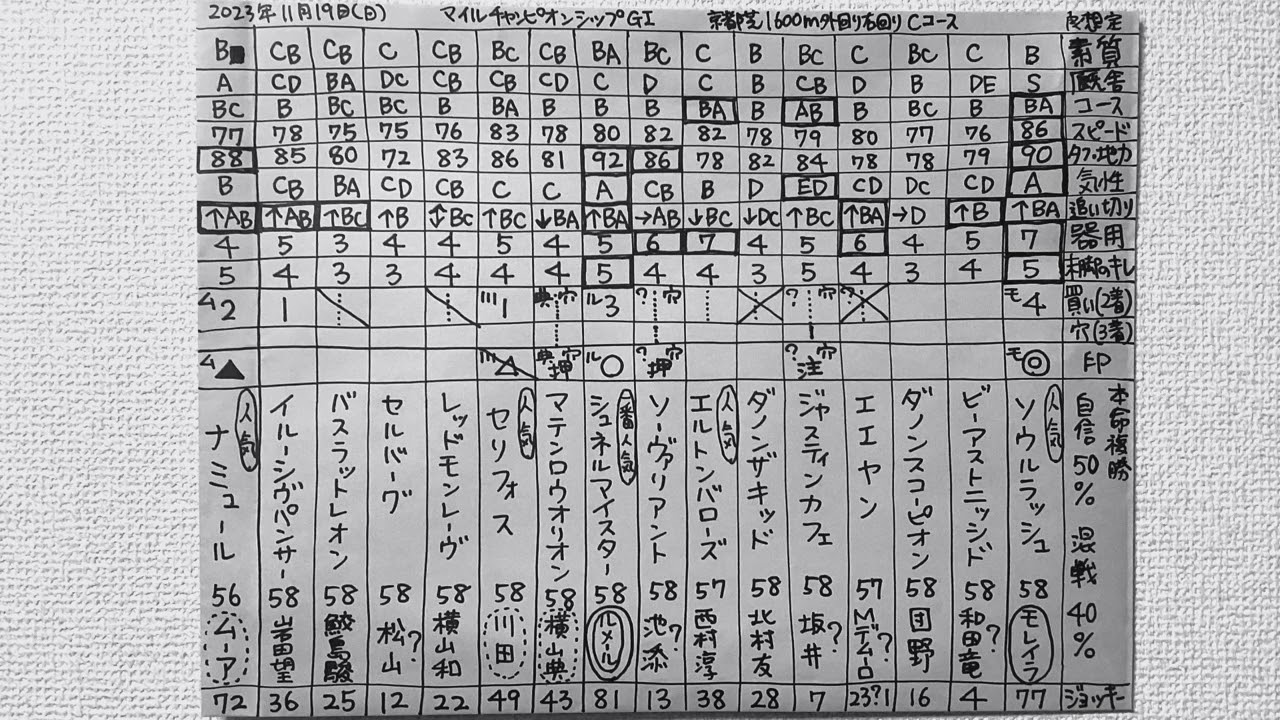 2023年11月19日(日) マイルチャンピオンシップGI 京都芝1600m外回り右回りCコース 良想定
B CB CB C CB BC CB BA BC C B BC C BC C B 素質
A CD BA DC CB CB CD C D C B CB D B DE S 厩舎
BC B BC BC B BA B B B BA B AB B BC B BA コース
77 78 75 75 76 83 78 80 82 82 78 79 80 77 76 86 スピード
88 85 80 72 83 86 81 92 86 78 82 84 78 78 79 90 タフ・地力
B CB BA CD CB C C A CB B D ED CD DC CD A 気性
↑AB ↑AB ↑BC ↑B ↕BC ↑BC ↓BA ↑BA →AB ↓BC ↓DC ↑BC ↑BA →D ↑B ↑BA 追い切り
4 5 3 4 4 5 4 5 6 7 4 5 6 4 5 7 器用
5 4 3 3 4 4 4 5 4 4 3 5 4 3 4 5 末脚のキレ
ム2 1 川1 典穴 ル3 ?穴 ?穴 ? モ4 買い(2着)
穴(3着)
ム▲ 川△ 典穴押 ル○ ?穴押 ?穴注 モ◎ 印
人気 ナミュール イルーシヴパンサー バスラットレオン セルバーグ レッドモンレーヴ 人気 セリフォス マテンロウオリオン 一番人気 シュネルマイスター ソーヴァリアント 人気 エルトンバローズ ダノンザキッド ジャスティンカフェ エエヤン ダノンスコーピオン ビーアストニッシド 人気 ソウルラッシュ 本命複勝 自信50% 混戦40%
56 58 58 58 58 58 58 58 58 57 58 58 57 58 58 58
ムーア 岩田望 鮫島駿 松山? 横山和 川田 横山典 ルメール 池添? 西村淳 北村友 坂井? Mデムーロ? 団野 和田竜? モレイラ
72 36 25 12 22 49 43 81 13 38 28 7 23?1 16 4 77 ジョッキー